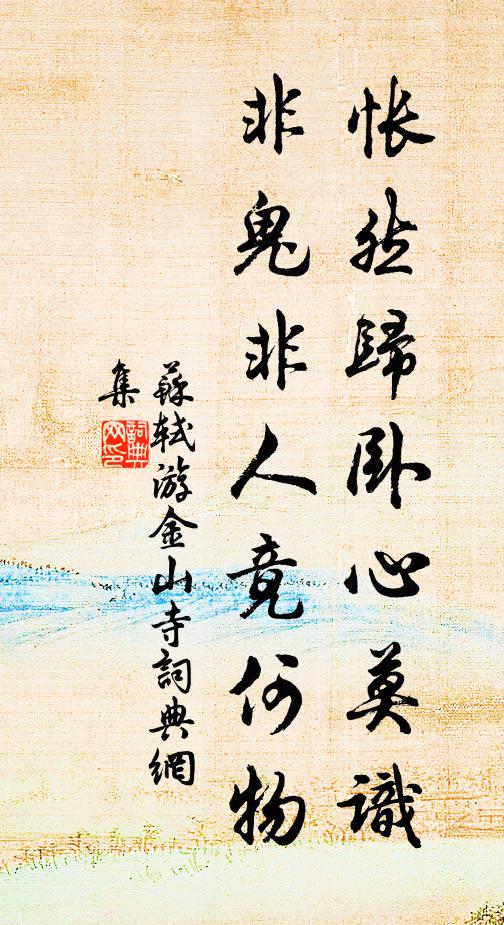 悵然歸臥心莫識
非鬼非人竟何物
蘇軾游金山寺詞典網
集
詞典
网印